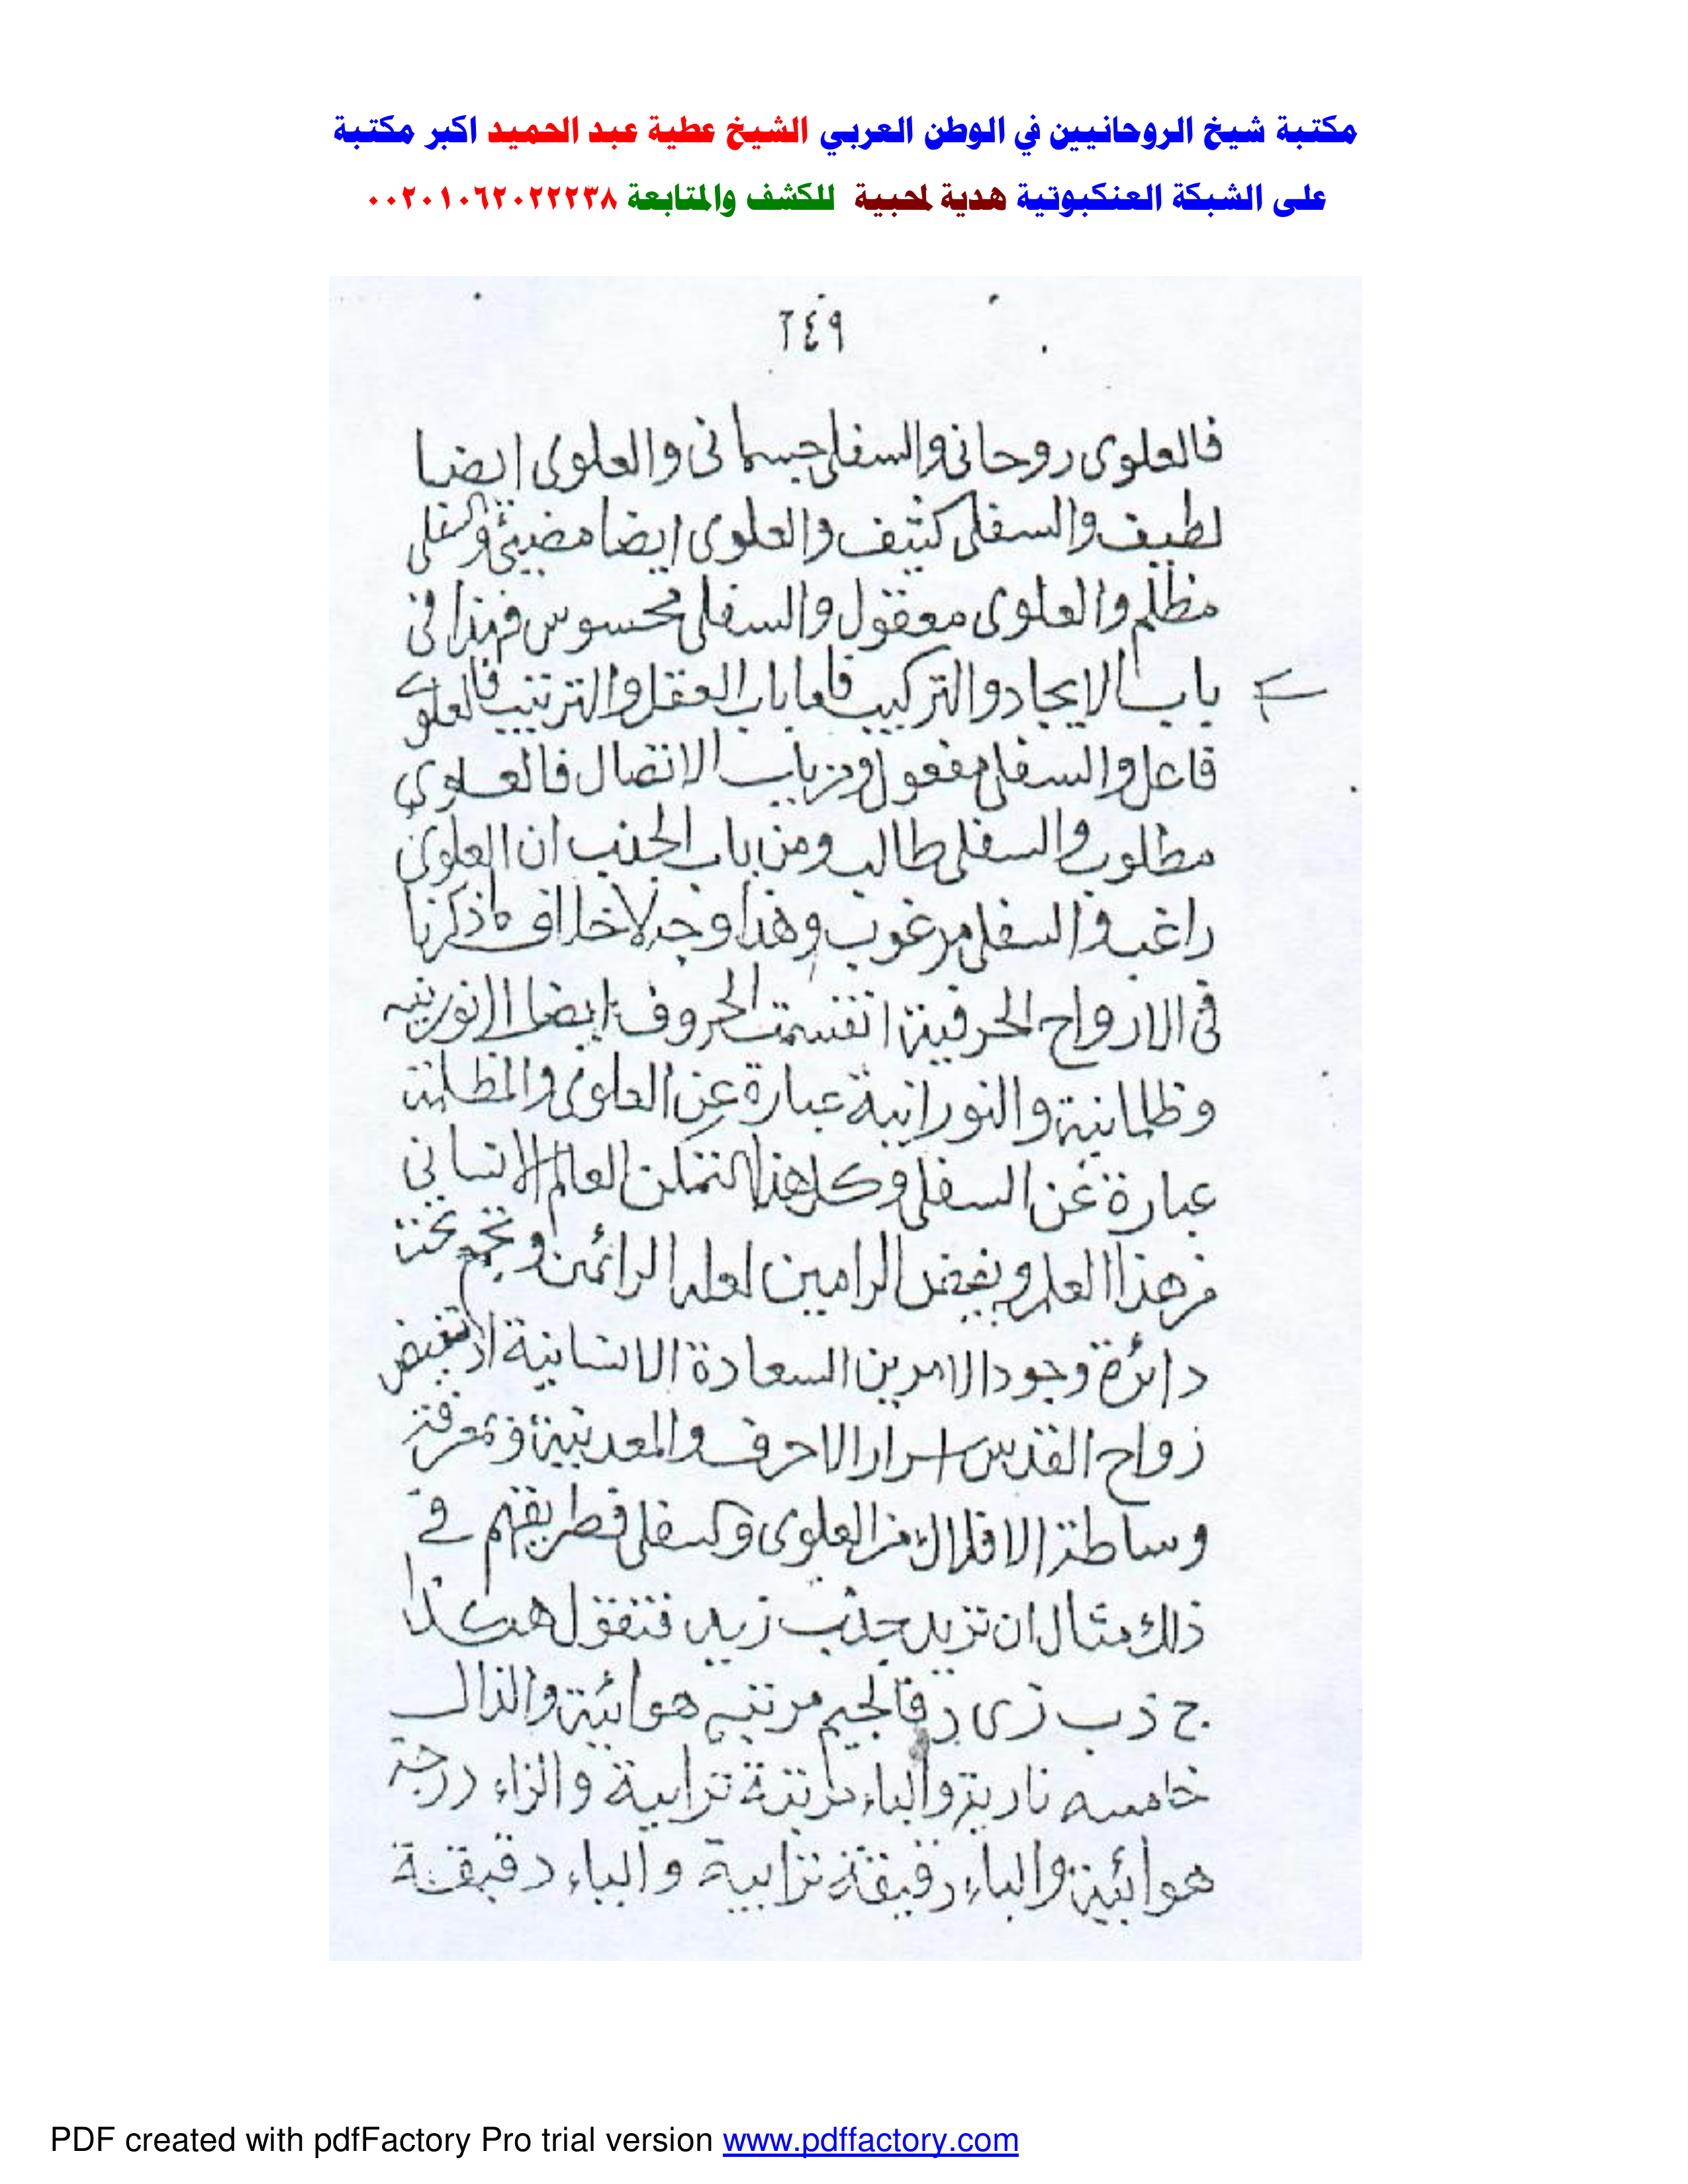 مكتبة شيخ الروحانيين في الوطن العربي الشيخ عطية عبد الحميد اكبر مكتبة
على الشبكة العنكبوتية هدية لمحبية للكشف والمتابعة ٠٠٢٠١٠٦٢٠٢٢٢٣٨
٢٤٩
فالعلوى روحانى والسفلى جسمانى والعلوى ايضا
لطيف والسفلى كثيف والعلوى ايضا مضيئ والسفلى
مظلم والعلوى معقول والسفلى محسوس فهذا فى
باب الايجاد والتركيب فاما باب العقل والترتيب فالعلوى
فاعل والسفلى مفعول ومن باب الاتصال فالعلوى
مطلوب والسفلى طالب ومن باب الجذب ان العلوى
راغب والسفلى مرغوب وهذا وجه لا خلاف ماذكرنا
فى الارواح الحرفية انقسمت الحروف ايضا الى نورنيه
وظلمانية والنورانية عبارة عن العلوى والمظلمة
عبارة عن السفلى وكل هذا العالم الانسانى
من هذا العلم الرامين لعله الرائمين وتجمع تحت
دائرة وجود الامرين السعادة الانسانية
زواح القدس اسرار الاحرف
وساطة الافلاك من العلوى والسفلى فطريقهم فى
ذلك مثال ان تريد جذب زيد فتقول هكذا
ج ذ ب ز ى د فالجيم مرتبه هوائية والذال
خامسه نارية والباء مرتبة ترابية والزاء درجة
هوائية والياء دقيقة ترابية والباء دقيقة
PDF created with pdfFactory Pro trial version www.pdffactory.com